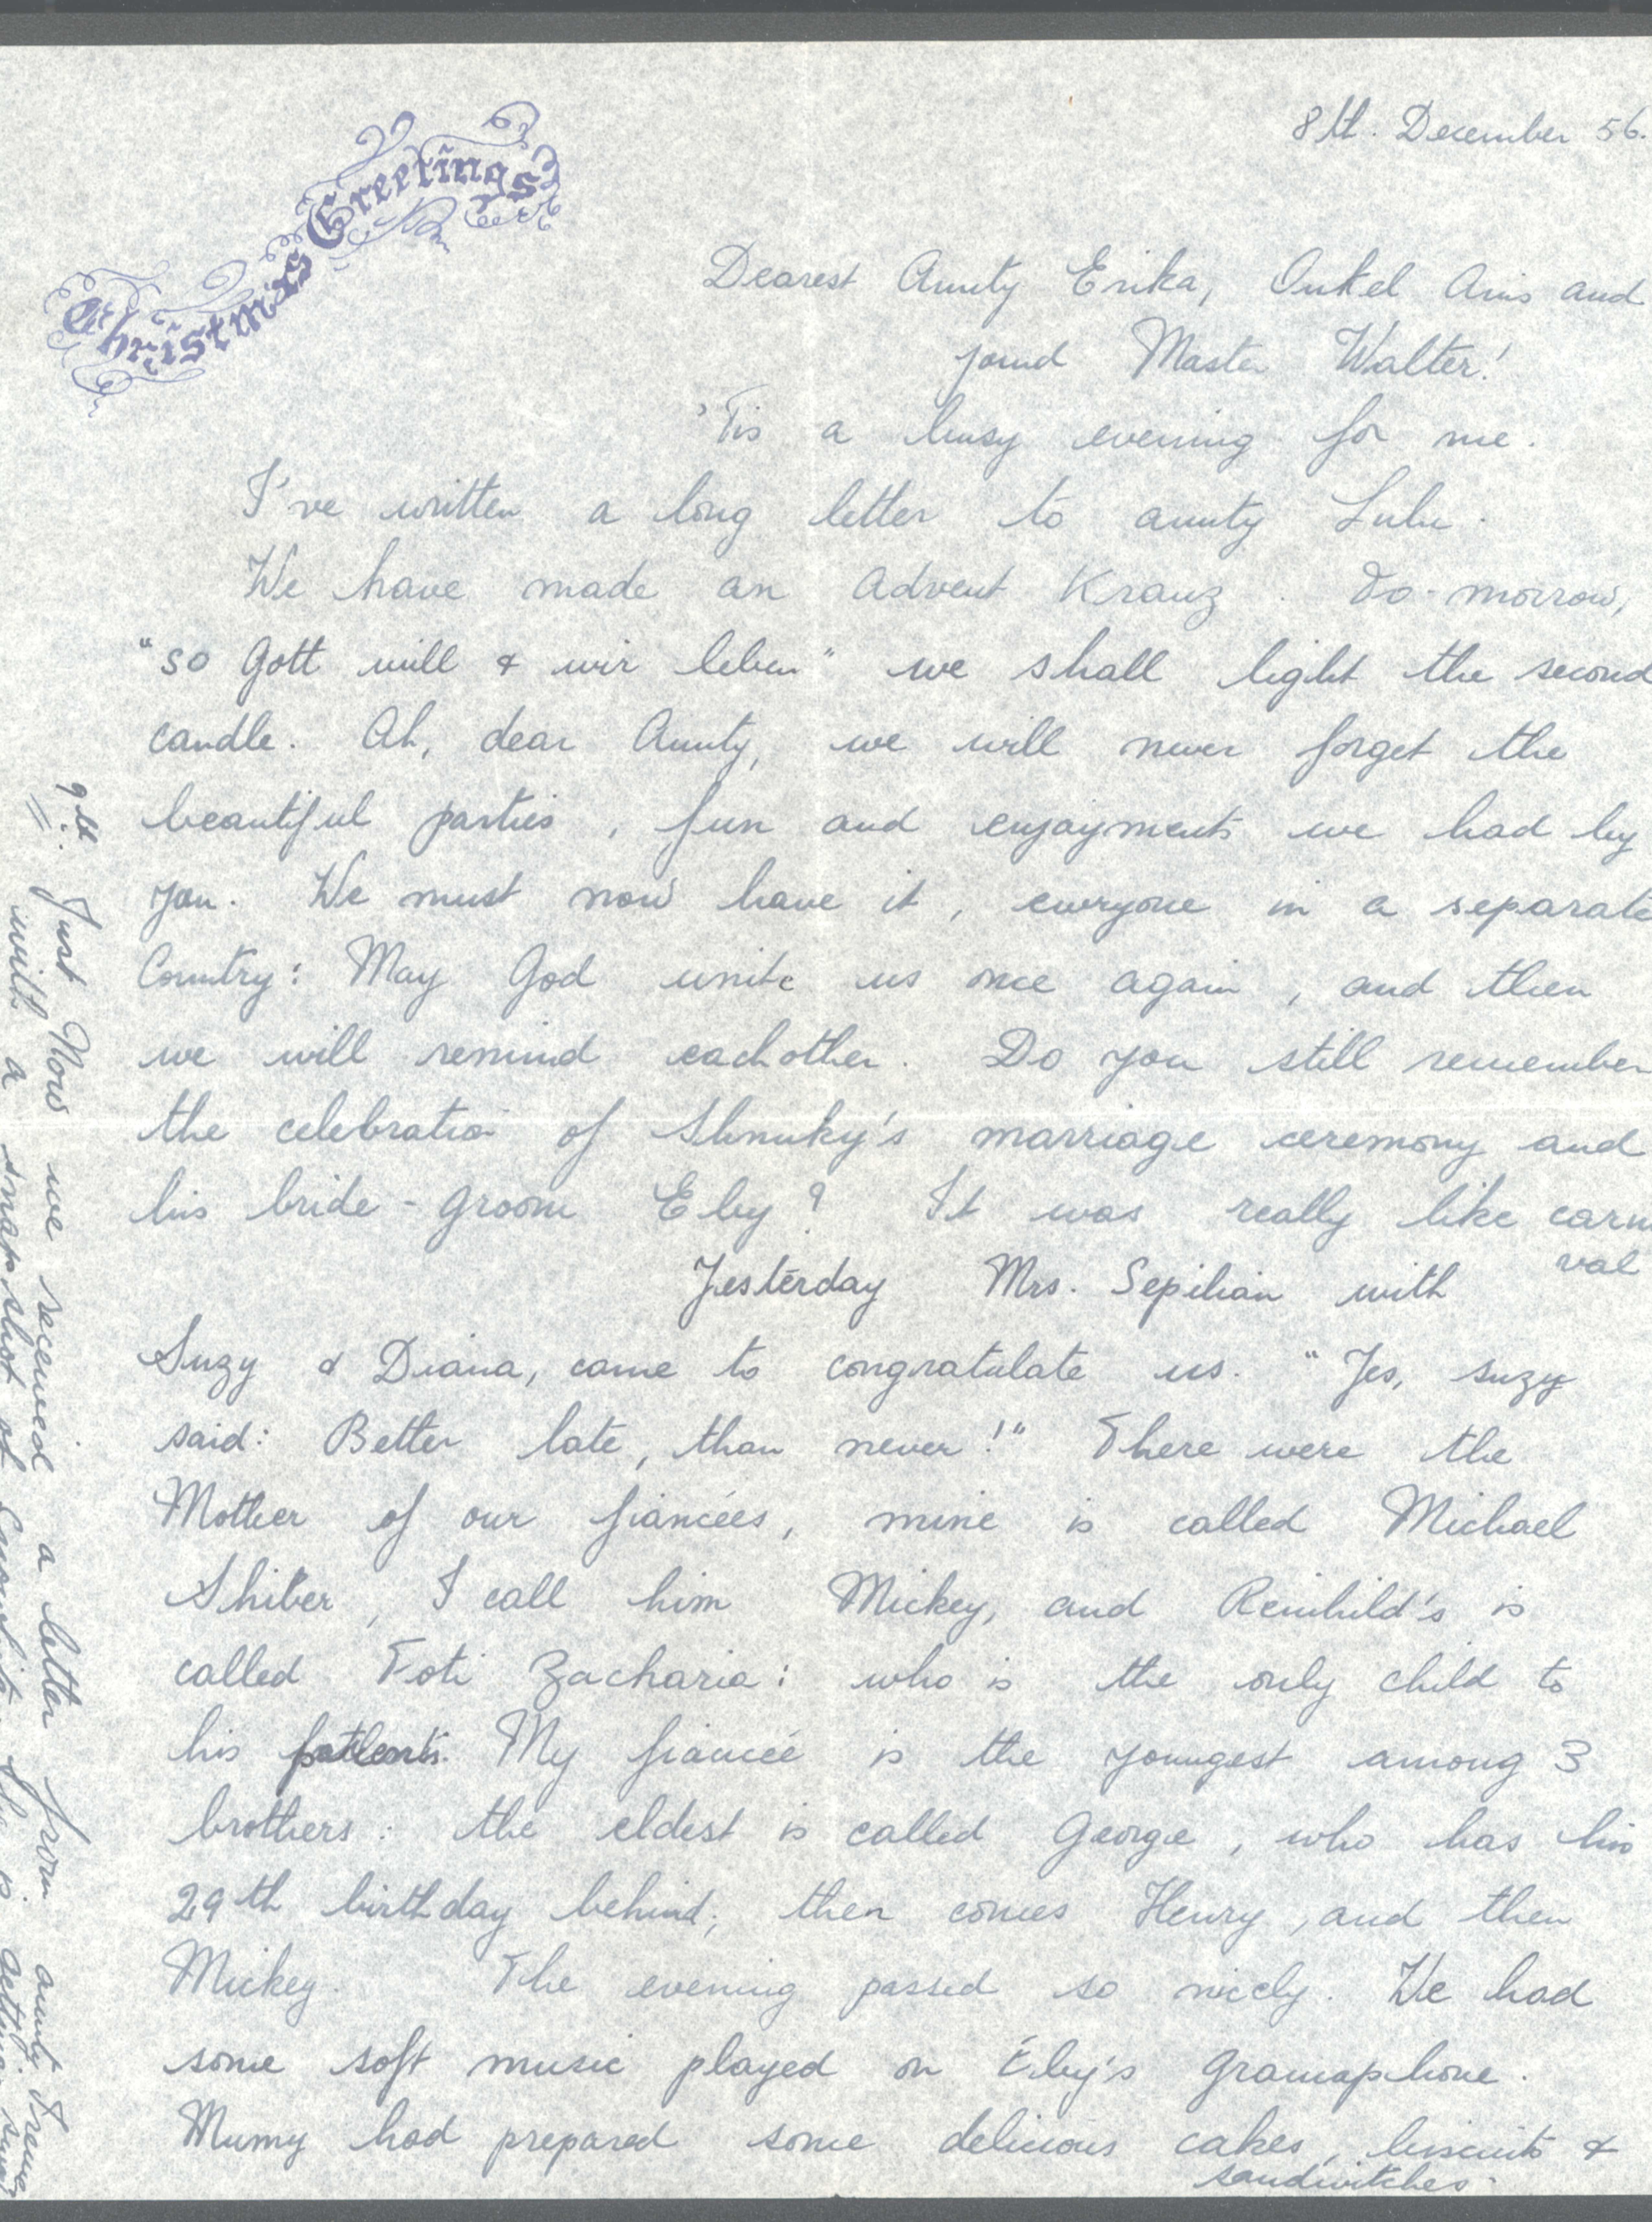 Christmas Greetings
8th. December 56.
Dearest Aunty Erika, Onkel Anis and
yound Master Walter!
'Tis a busy evening for me.
I've written a long letter to aunty Lulu.
We have made an Advent Kranz. To-morrow,
"so Gott will & wir leben" we shall light the second
candle. Ah, dear Aunty, we will never forget the
beautiful parties, fun and enjoyments we had by
you. We must now have it, everyone in a separate
Country: May God unite us once again, and then
we will remind eachother. Do you still remember
the celebration of Shnuky's marriage ceremony and
his bride-groom Eby? It was really like carni
val
Yesterday Mrs. Sepilian with
Suzy & Diana, came to congratulate us. "Yes, suzy
said: Better late, than never!" There were the
Mother of our fiancées, mine is called Michael
Shiber, I call him Mickey, and Reinhild's is
called Foti Zacharia: who is the only child to
his My fiancée is the youngest among 3
brothers: the eldest is called George, who has his
29th birthday behind; then comes Henry, and then
Mickey. The evening passed so nicely. We had
some soft music played on Eby's gramaphone.
Mumy had prepared some delicious cakes, biscuits &
sandwitches.
9th. Just Now we received a letter from aunty Irene
with a snap-shot of she is getting